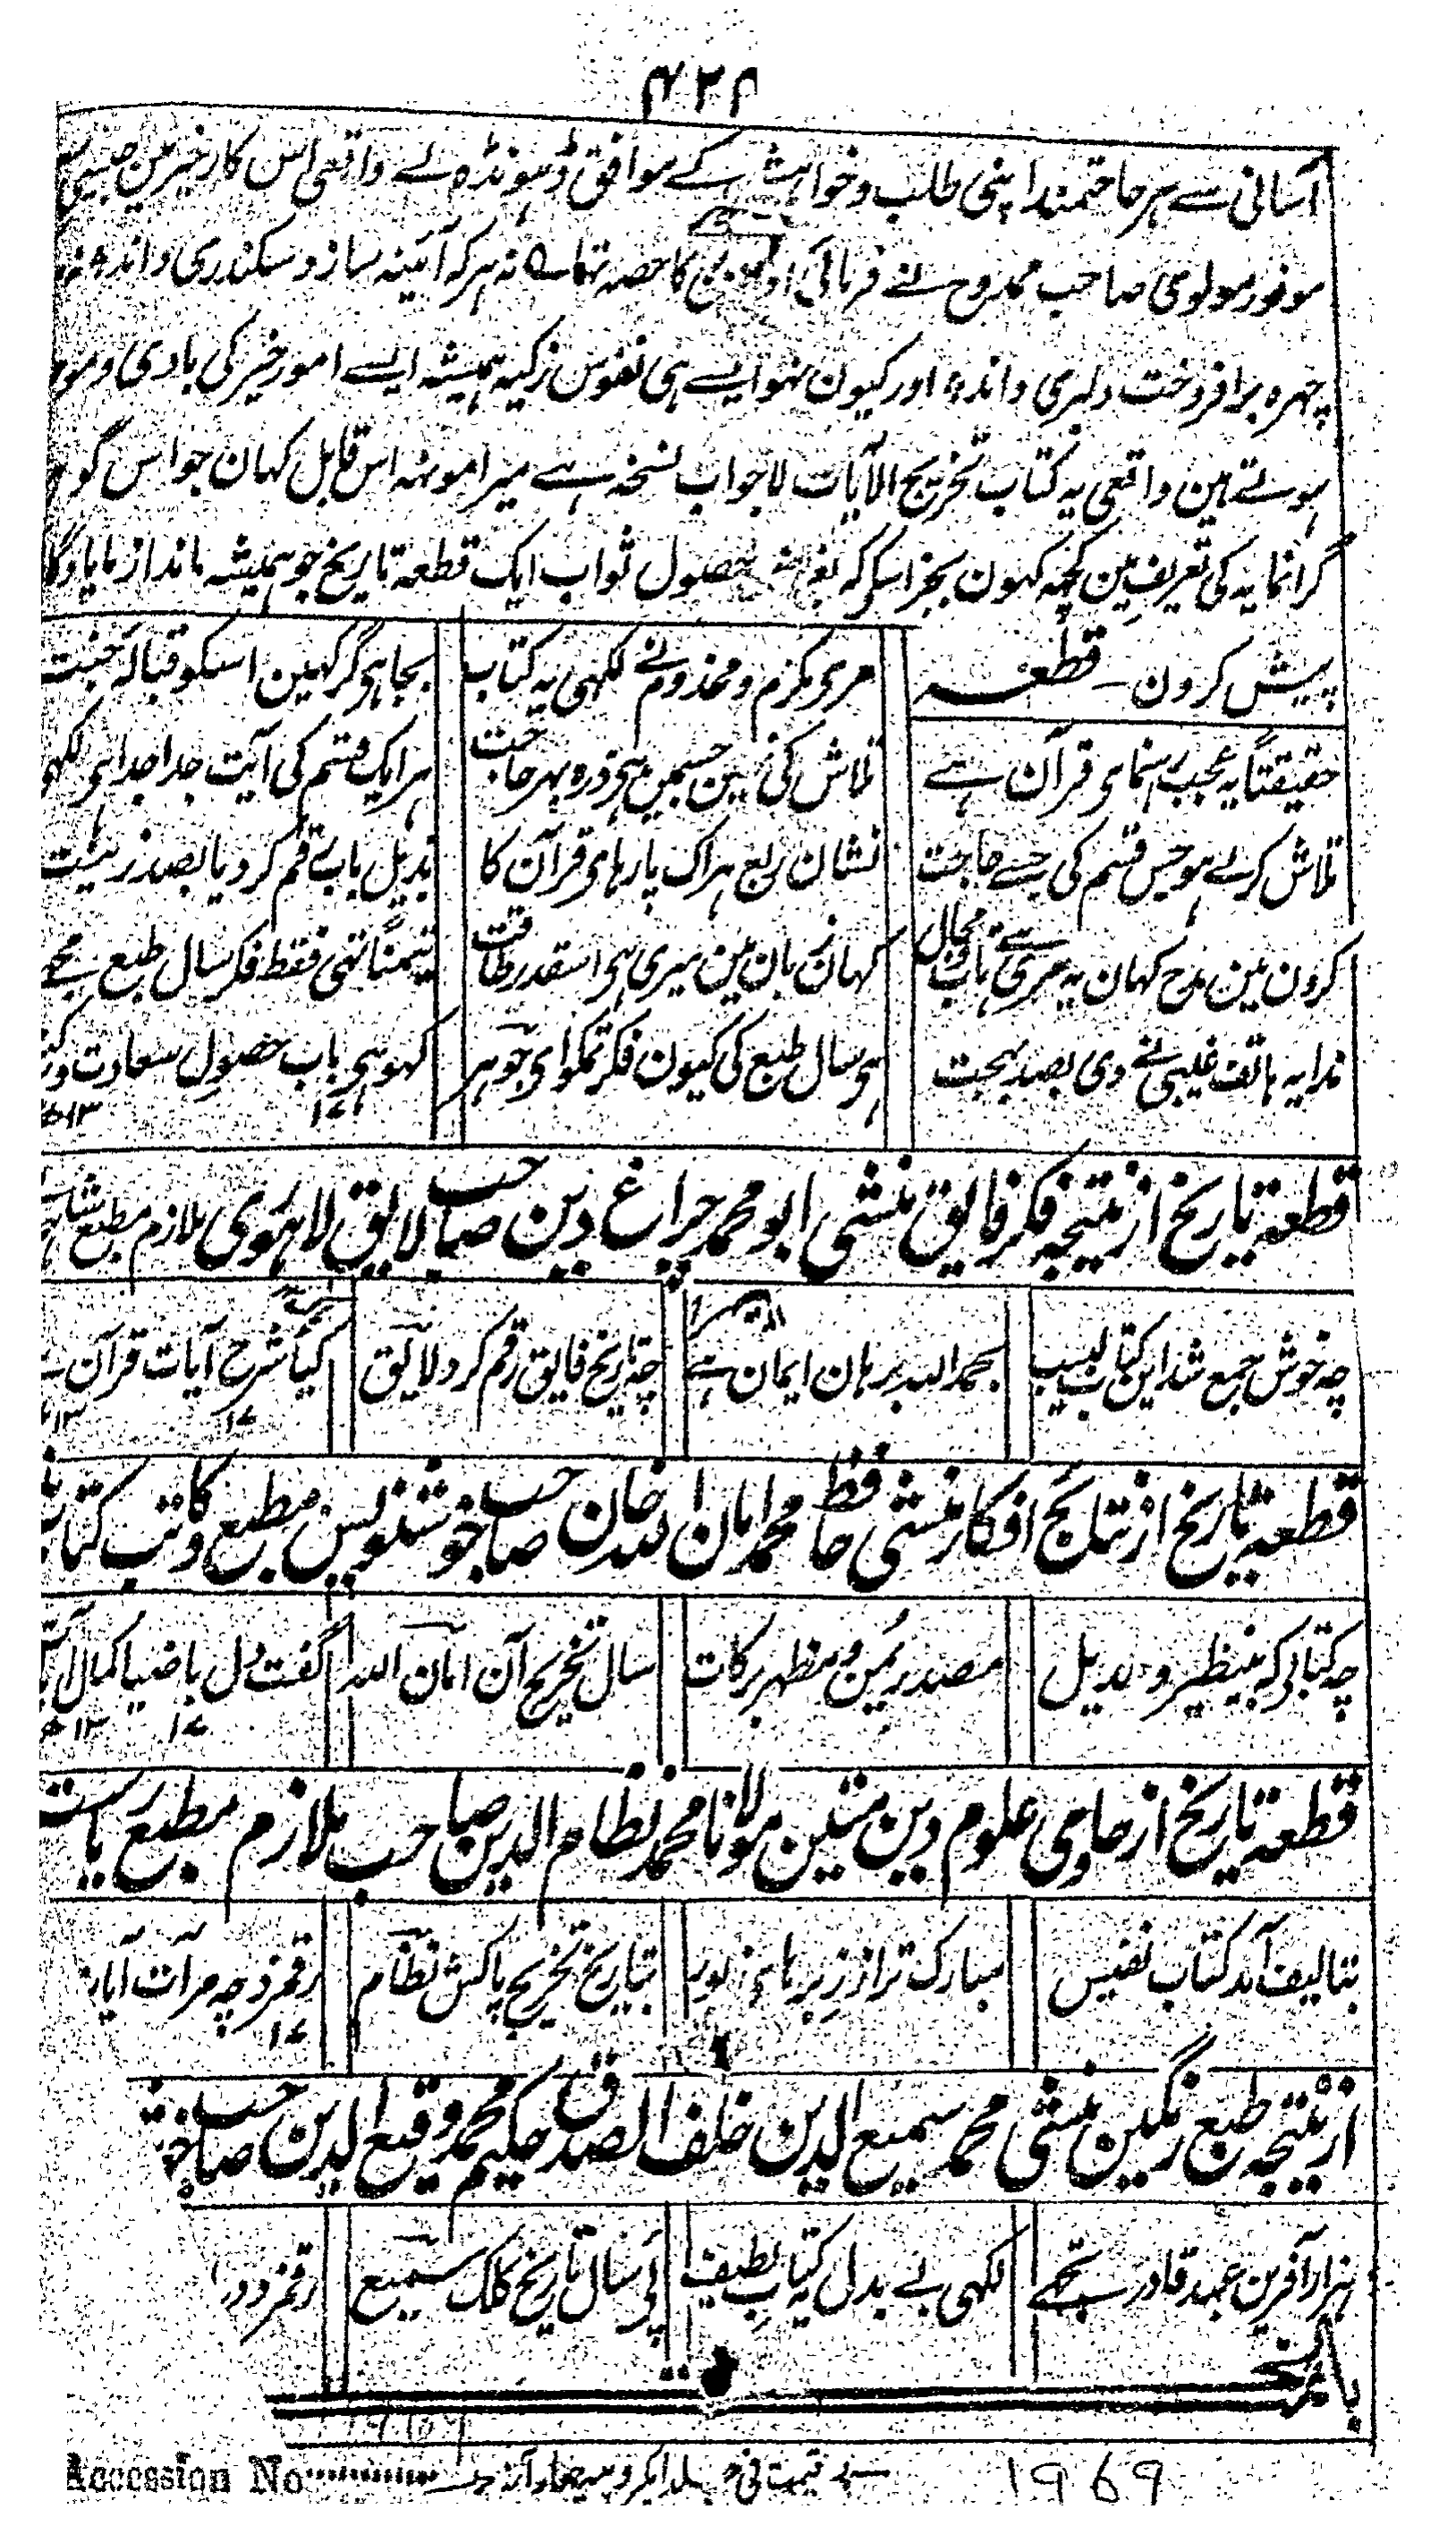 ۴۲۸
آسانی سے ہر حاجتمند اپنی طلب و خواہش کے موافق ڈھونڈہ لے واقعی اس کار خیر مین
موفور مولوی صاحب ممدوح نے فرمائی کا حصہ تھا ہ نہ ہر کہ آئینہ سازد سکندری داند
چہرہ برافروخت دلبری داند اور کیون نہو ایسے ہی نفوس زکیہ ہمیشہ ایسے امور خیر کی بادی و
ہوتے ہین واقعی یہ کتاب تخریج الآیات لاجواب نسخہ ہے میرا مونہہ اس قابل کہان جو اس
گرانمایہ کی تعریف مین کچہہ کہون بجز اسکے کہ بغرض حصول ثواب ایک قطعہ تاریخ جو ہمیشہ
پیش کرون ۔ قطعہ
مری مکرم و مخذوم نے لکھی یہ کتاب
بجا ہی گر کہین اسکو قبالۂ جنت
حقیقتاً یہ عجب رہنمای قرآن ہے
تلاش کی نہین جسمین ہی ذرہ بہر حاجت
ہر ایک قسم کی آیت جدا جدا ہی لکھی
تلاش کرلے ہو جس قسم کی جسے حاجت
نشان ربع ہر اک پارہای قرآن کا
بذیل باب رقم کردیا بصد زینت
کرون مین مدح کہان یہ مری ہے تاب و مجال
کہان زبان مین میری ہی اسقدر طاقت
تیمناً تھی فقط فکر سال طبع مجھے
ندا یہ ہاتف غیبی نے دی بصد بہجت
ہی سال طبع کی کیون فکر تمکو ای جوہر
کہو ہی باب حصولِ سعادت و
قطعہ تاریخ از نتیجہ فکر فایق منشی ابو محمد چراغ دین صاحب لایق لاہوری ملازم مطبع
چہ خوش جمع شد این کتاب لبیب
بحمد اللہ برہان ایمان ہے
چہ تاریخ فایق رقم کرد لایق
کیا شرح آیات قرآن
قطعہ تاریخ از نتایج افکار منشی حافظ محمد امان اللہ خان صاحب خوشنویس مطبع و کاتب
چہ کتابی کہ بینظیر و بدیل
مصدر یُمن و مظہر برکات
سال تخریج آن امان اللہ
گفت دل با ضیا کمال
قطعہ تاریخ از حاوی علوم دین متین مولانا محمد نظام الدین صاحب ملازم مطبع ریاست
بتالیف آمد کتاب نفیس
مبارک تر از زبرہای
بتاریخ تخریج پاکش نظام
رقمزد چہ مرات
از نتیجہ طبع رنگین منشی محمد سمیع الدین خلف الصدق حکیم محمد وقیع الدین صاحب
ہزار آفرین عبد قادر تجھے
لکھی بے بدل کیا کتاب لطیف
پی سال تاریخ کلک سمیع
رقمزد
بالخیر
Accession No
قیمت فی جلد
1969